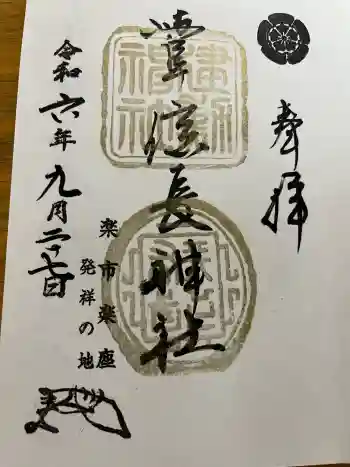 奉拝
岐阜信長神社
建勲神社
楽市楽座
発祥の地
令和六年九月二十七日